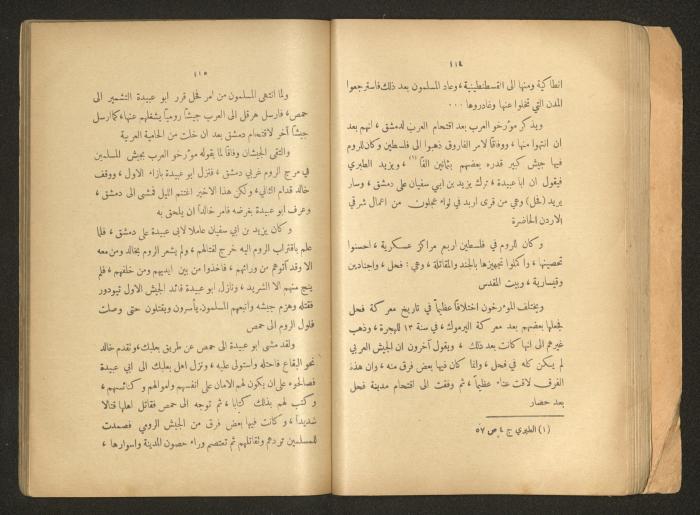 ١١٤
انطاكية ومنها الى القسطنطينية ، وعاد المسلمون بعد ذلك فاسترجعوا
المدن التي تخلوا عنها وغادروها ...
ويذكر مؤرخو العرب بعد اقتحام العرب لدمشق ، انهم بعد
ان انتهوا منها ، ووفاقا لامر الفاروق ذهبوا الى فلسطين وكان للروم
فيها جيش كبير قدره بعضهم بثمانين الفاً (١) ، ويزيد الطبري
فيقول ان ابا عبيدة ، ترك يزيد بن ابي سفيان على دمشق ، وسار
يريد (فحل) وهي من قرى اربد في لواء عجلون من اعمال شرقي
الاردن الحاضرة
وكان للروم في فلسطين اربع مراكز عسكرية ، احسنوا
تحصينها ، واكملوا تجهيزها بالجند والمقاتلة ، وهي : فحل ، واجنادين
وقيسارية ، وبيت المقدس
ويختلف المؤرخون اختلافاً عظيماً في تاريخ معركة فحل
يجعلها بعضهم بعد معركة اليرموك ، في سنة ١٣ للهجرة ، وذهب
غيرهم الى انها كانت بعد ذلك ، ويقول آخرون ان الجيش العربي
لم يكن كله في فحل ، وانما كان فيها بعض فرق منه ، وان هذه
الفرق لاقت عناء عظيماً ، ثم وفقت الى اقتحام مدينة فحل
بعد حصار
(١) الطبري ج ٤ ص ٥٧
١١٥
ولما انتهى المسلمون من امر فحل قرر ابو عبيدة التشمير الى
حمص ، فارسل هرقل الى العرب جيشاً رومياً يشغلهم عنها ، كما رسل
جيشاً آخر لاقتحام دمشق بعد ان خلت من الحامية العربية
والتقى الجيشان وفاقاً لما يقوله مؤرخو العرب بجيش المسلمين
في مرج الروم غربي دمشق ، فنزل ابو عبيدة بازاء الاول ، ووقف
خالد قدام الثاني ، ولكن هذا الاخير اغتنم الليل فمشى الى دمشق ،
وعرف ابو عبيدة بغرضه فامر خالداً ان يلحق به
وكان يزيد بن ابي سفيان عاملا لابي عبيدة على دمشق ، فلما
علم باقتراب الروم اليه خرج لقتالهم ، ولم يشعر الروم بخالد ومن معه
الا وقد أتوهم من ورائهم ، فاخذوا من بين ايديهم ومن خلفهم ، فلم
ينج منهم الا الشريد ، ونازل ابو عبيدة قائد الجيش الاول تيودور
فقتله وهزم جيشه واتبعهم المسلمون يأسرون ويقتلون حتى وصلت
فلول الروم الى حمص
ولقد مشى ابو عبيدة الى حمص عن طريق بعلبك ، وتقدم خالد
نحو البقاع فاحتله واستولى عليه ، ونزل اهل بعلبك الى ابي عبيدة
فصالحوه على ان يكون لهم الامان على انفسهم واموالهم وكنائسهم ،
وكتب لهم بذلك كتابا ، ثم توجه الى حمص فقاتل اهلها قتالا
شديداً ، وكانت فيها بعض فرق من الجيش الرومي فصمدت
للمسلمين تردهم وتقاتلهم ثم تعتصم وراء حصون المدينة واسوارها ،